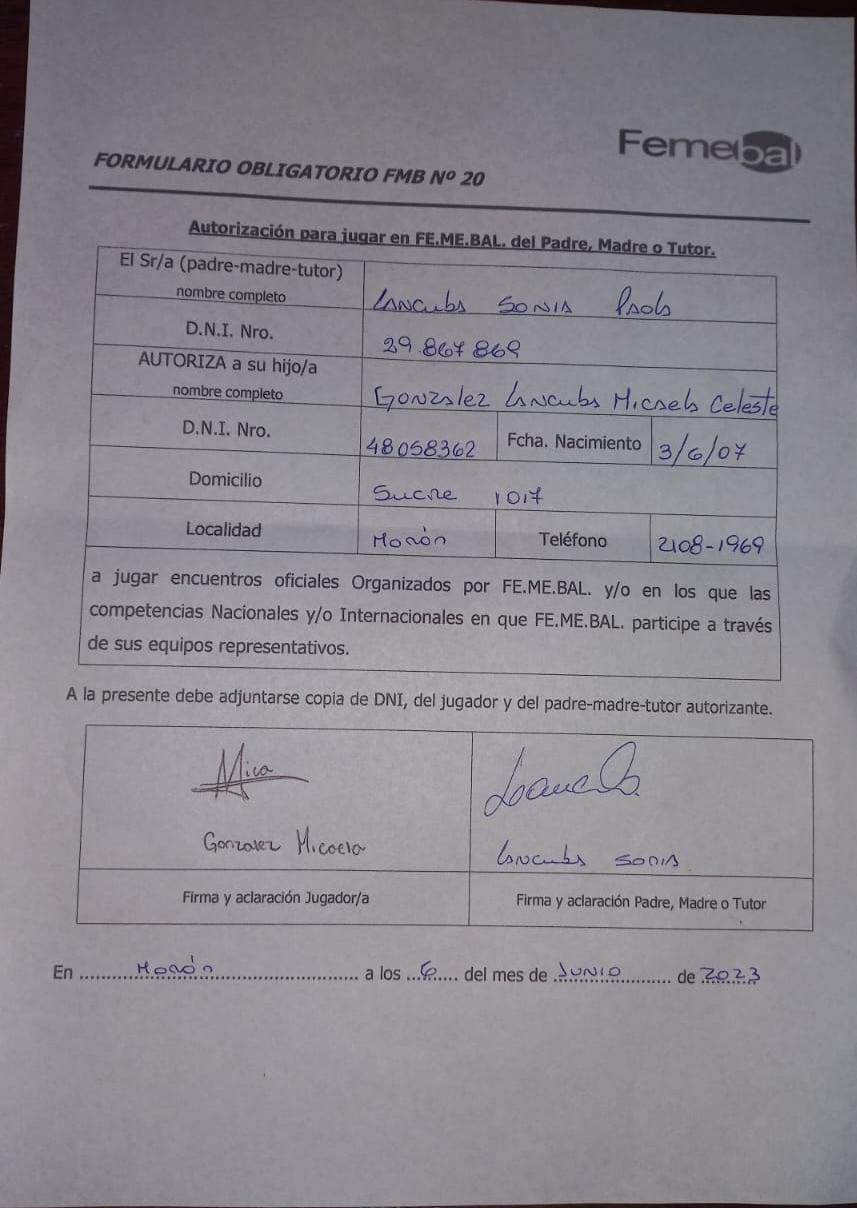 Femebal
FORMULARIO OBLIGATORIO FMB Nº 20
Autorización para jugar en FE.ME.BAL. del Padre, Madre o Tutor.
El Sr/a (padre-madre-tutor)
nombre completo Lancuba SONIA Paola
D.N.I. Nro. 29.867869
AUTORIZA a su hijo/a
nombre completo Gonzalez Lancuba Micaela Celeste
D.N.I. Nro. 48058362 Fcha. Nacimiento 3/6/07
Domicilio Sucre 1017
Localidad Morón Teléfono 2108-1969
a jugar encuentros oficiales Organizados por FE.ME.BAL. y/o en los que las
competencias Nacionales y/o Internacionales en que FE.ME.BAL. participe a través
de sus equipos representativos.
A la presente debe adjuntarse copia de DNI, del jugador y del padre-madre-tutor autorizante.
Mica
Gonzalez Micaela Lancuba SONIA
Firma y aclaración Jugador/a Firma y aclaración Padre, Madre o Tutor
En Morón a los 6 del mes de JUNIO de 2023